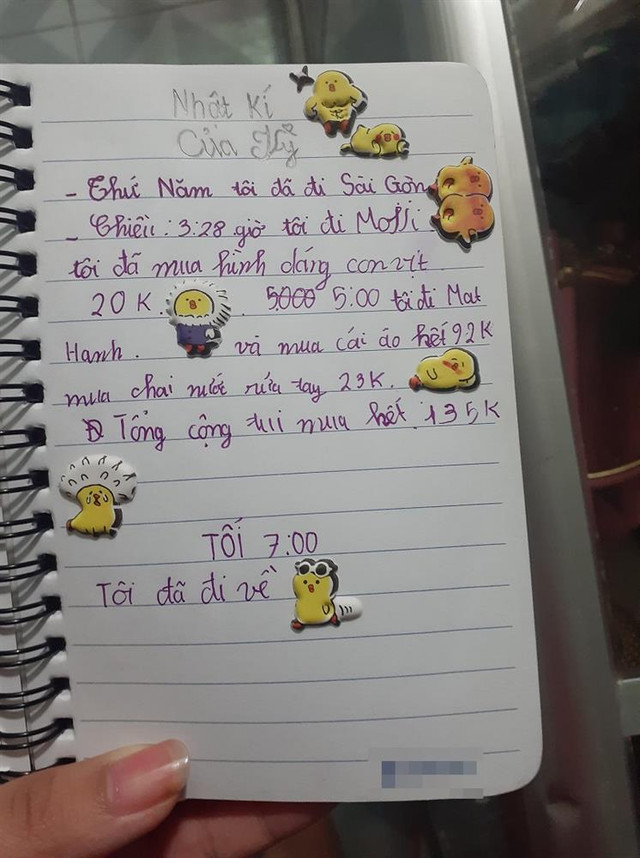 Nhật kí
Của Mỹ
- Thứ Năm tôi đã đi Sài Gòn
- Chiều: 3:28 giờ tôi đi Moji.
tôi đã mua hình dáng con vịt
20 K. 5000 5:00 tôi đi Mat
Hanh. và mua cái áo hết 92K
mua chai nước rửa tay 23K.
Tổng cộng tui mua hết 135K
TỐI 7:00
Tôi đã đi về